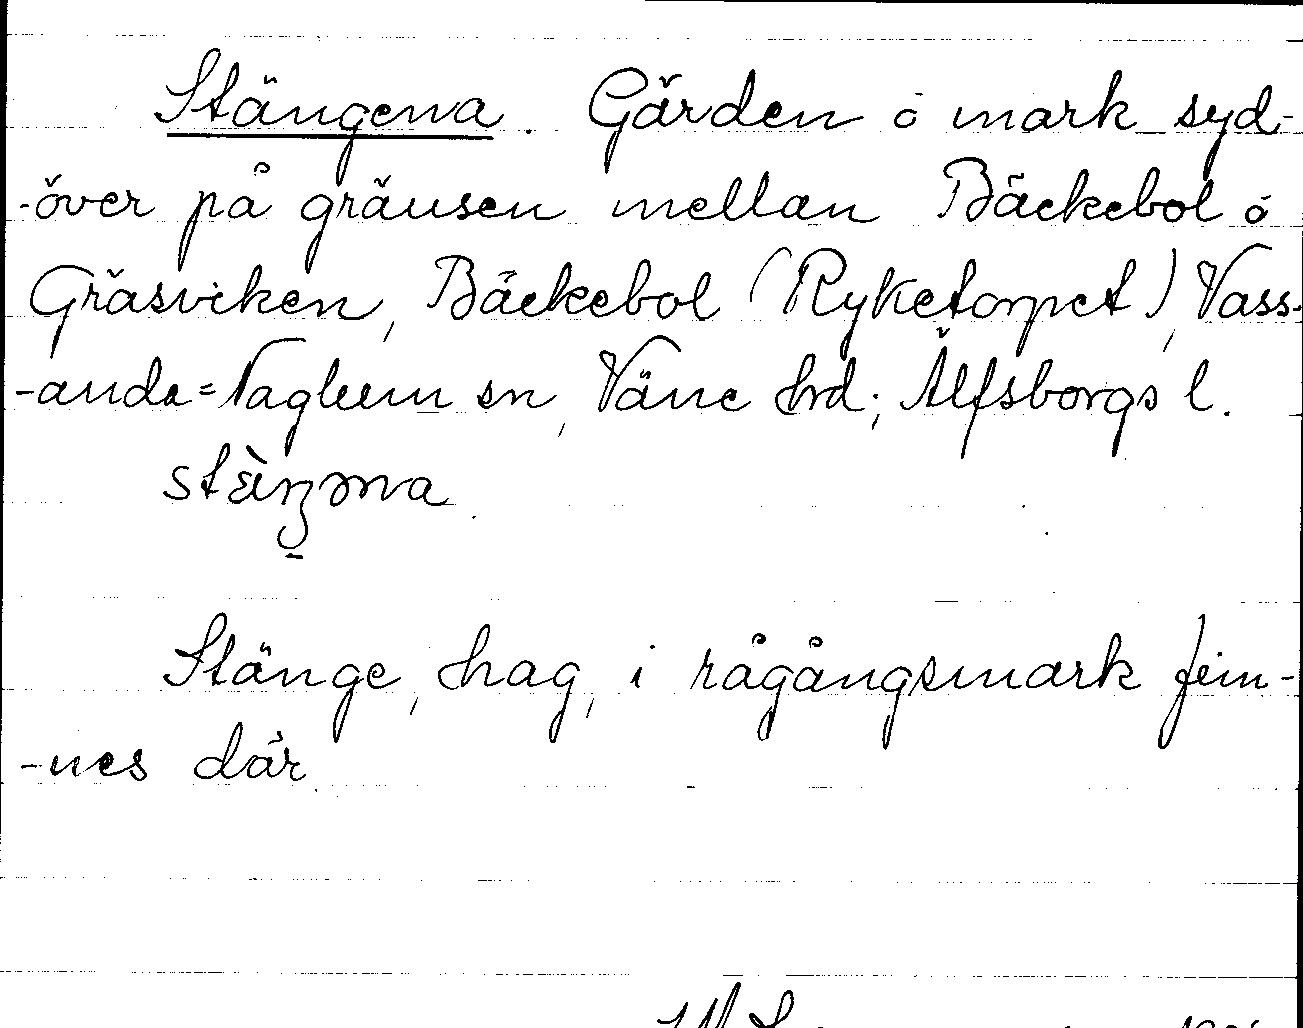 Stängena. Gärden ó mark syd-
-över på gränsen mellan Bäckebol ó
Gräsviken, Bäckebol (Ryketorpet), Vass-
-anda=Naglum sn, Väne hrd; Älfsborgs l.
Stänge, hag, i rågångsmark fin-
-nes där